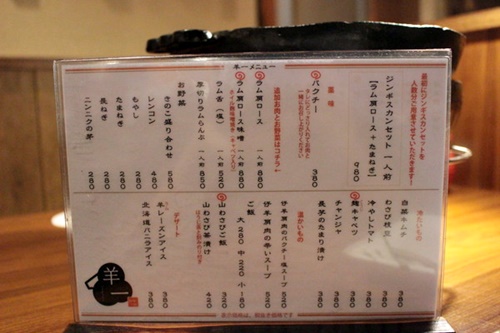 羊一メニュー
最初にジンギスカンセットを
人数分ご用意させていただきます！
ジンギスカンセット 一人前
【ラム肩ロース＋たまねぎ】
980
薬味
パクチー 380
追加お肉とお野菜はコチラ
ラム肩ロース 一人前 880
ラム肩ロース味噌 一人前 880
ラム舌（塩） 一人前 520
厚切りラムらんぷ 一人前 850
お野菜
きのこ盛り合わせ 580
レンコン 480
もやし 280
たまねぎ 280
長ねぎ 280
ニンニクの芽 280
冷たいもの
白菜キムチ 380
わさび枝豆 380
冷やしトマト 380
麹キャベツ 380
チャンジャ 380
長芋のたまり漬け 380
温かいもの
仔羊肩肉のパクチー塩スープ 520
仔羊肩肉の辛いスープ 520
ご飯 大 280 中 220 小 180
山わさびご飯 320
山わさび茶漬け 420
デザート
羊レーズンアイス 380
北海道バニラアイス 380
羊一